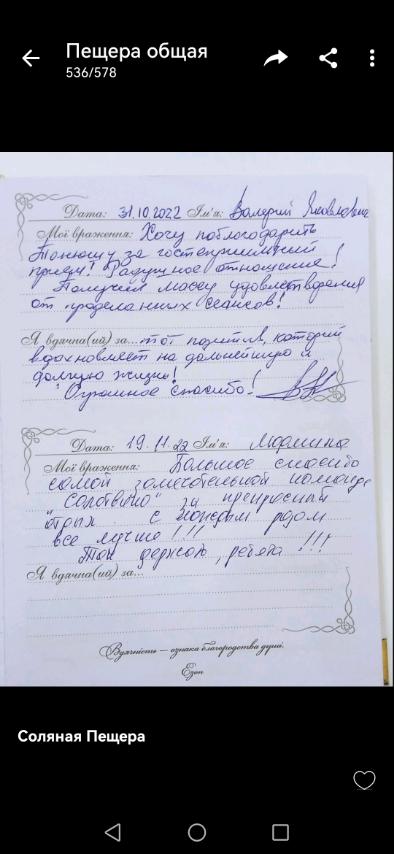 Пещера общая
536/578
Дата: 31.10.2022 Ім'я: Валерий
Мої враження: Хочу поблагодарить
за гостеприимный
прием! Радушное отношение!
Получил массу удовлетворения
от проделанных сеансов!
Я вдячна(ий) за... тот позитив, который
вдохновляет на дальнейшую и
долгую жизнь!
Огромное спасибо!
Дата: 19.11.22 Ім'я: Людмила
Мої враження: Большое спасибо
самой замечательной команде
за прекрасный
отдых. С каждым разом
все лучше!!!
Так держать, ребята!!!
Я вдячна(ий) за...
Вдячність — ознака благородства душі.
Езоп
Соляная Пещера